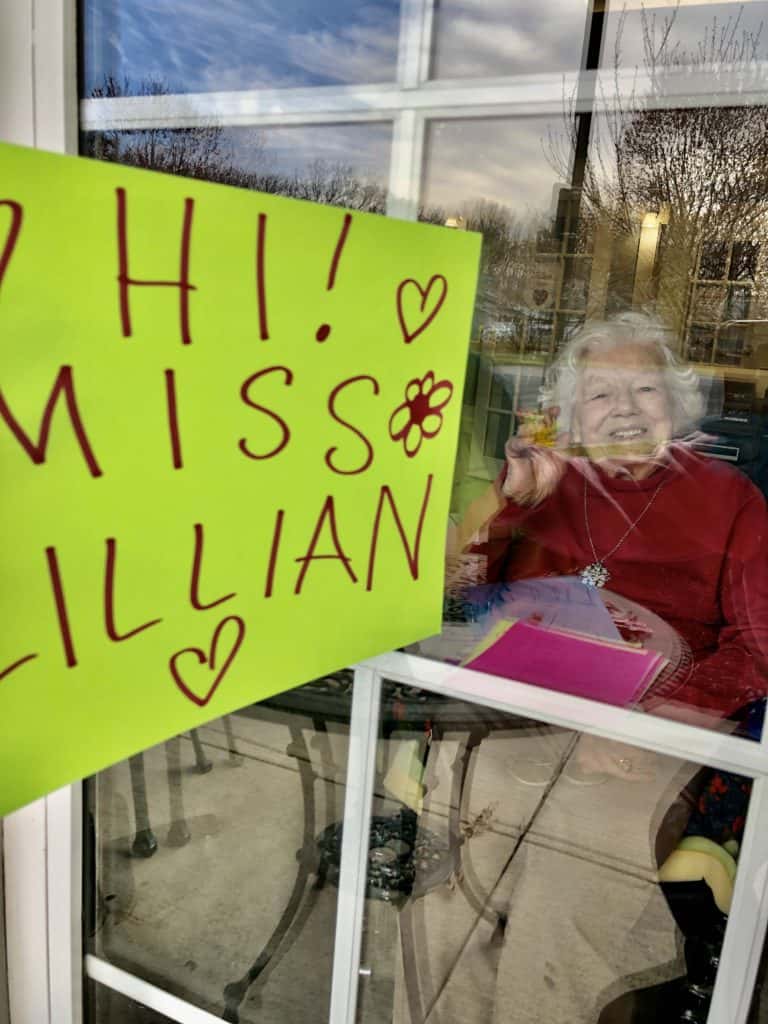 HI!
MISS
LILLIAN